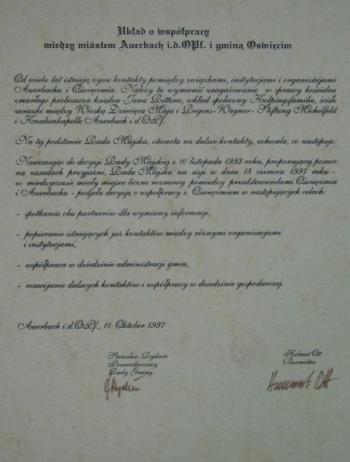 Układ o współpracy
między miastem Auerbach i.d.OPf. i gminą Oświęcim
Od wielu lat istnieją żywe kontakty pomiędzy związkami, instytucjami i organizacjami
Auerbachu i Oświęcimia. Należy tu wymienić zaangażowanie w sprawy kościelne
zmarłego proboszcza księdza Jana Dittera, wkład społeczny Kolpingsfamilie, ścisłe
związki między Wioską Dziecięcą Maja i Regens-Wagner-Stiftung Michelfeld
i Knabenkapelle Auerbach i.d.OPf.
Na tej podstawie Rada Miejska, otwarta na dalsze kontakty, uchwala, co następuje:
Nawiązując do decyzji Rady Miejskiej z 10 listopada 1993 roku, proponującej pomoc
na zasadach przyjaźni, Rada Miejska na sesji w dniu 18 czerwca 1997 roku -
w międzyczasie miały miejsce liczne rozmowy pomiędzy przedstawicielami Oświęcimia
i Auerbachu - podjęła decyzję o współpracy z Oświęcimiem w następujących celach:
- spotkania obu partnerów dla wymiany informacji,
- popieranie istniejących już kontaktów między różnymi organizacjami
i instytucjami,
- współpraca w dziedzinie administracji gmin,
- rozwijanie dalszych kontaktów i współpracy w dziedzinie gospodarczej.
Auerbach i.d.OPf., 11. Oktober 1997
Stanisław Rydzoń
Przewodniczący
Rady Gminy
Helmut Ott
Burmistrz
Helmut Ott